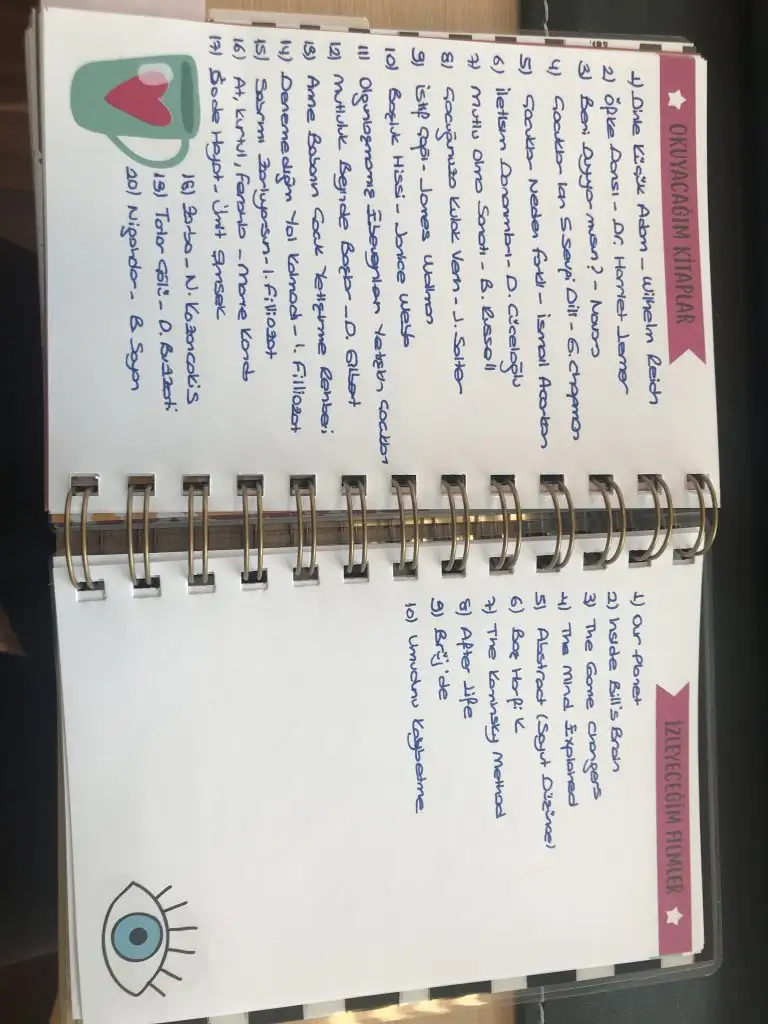 OKUYACAĞIM KİTAPLAR
1) Dinle Küçük Adam - Wilhelm Reich
2) Öfke Dansı - Dr. Harriet Lerner
3) Beni Duyuyor musun? - Navaro
4) Çocuklar İçin 5 Sevgi Dili - G. Chapman
5) Çocuklar Neden farklı - İsmail Acarkan
6) İletişim Donanımları - D. Cüceloğlu
7) Mutlu Olma Sanatı - B. Russell
8) Çocuğunuza Kulak Verin - J. Salter
9) İstif Çağı - James Wallman
10) Boşluk Hissi - Janice Webb
11) Olgunlaşmamış Ebeveynlerin Yetişkin Çocukları
12) Mutluluk Beyinde Başlar - D. Gilbert
13) Anne Babanın Çocuk Yetiştirme Rehberi
14) Denemediğim Yol Kalmadı - I. Filliozat
15) Sabrımı Zorluyorsun - I. Filliozat
16) At, kurtul, Ferahla - Marie Kondo
17) Sade Hayat - Ümit Şimşek
18) Zorba - N. Kazancakis
19) Tatar Çölü - D. Buzzati
20) Nigardor - B. Sayan
İZLEYECEĞİM FİLMLER
1) Our Planet
2) Inside Bill's Brain
3) The Game Changers
4) The Mind Explained
5) Abstract (Soyut Düşünce)
6) Baş Harfi K
7) The Kominsky Method
8) After Life
9) Brüj'de
10) Umudunu Kaybetme